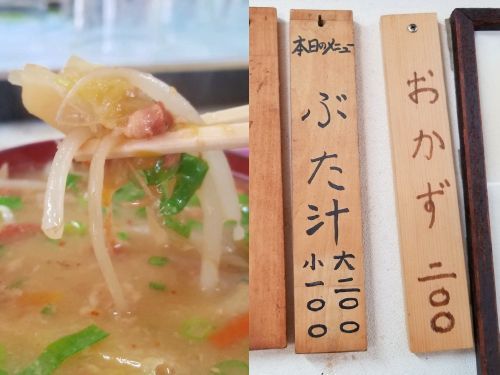 本日のメニュー
ぶた汁
大二〇〇
小一〇〇
おかず 二〇〇